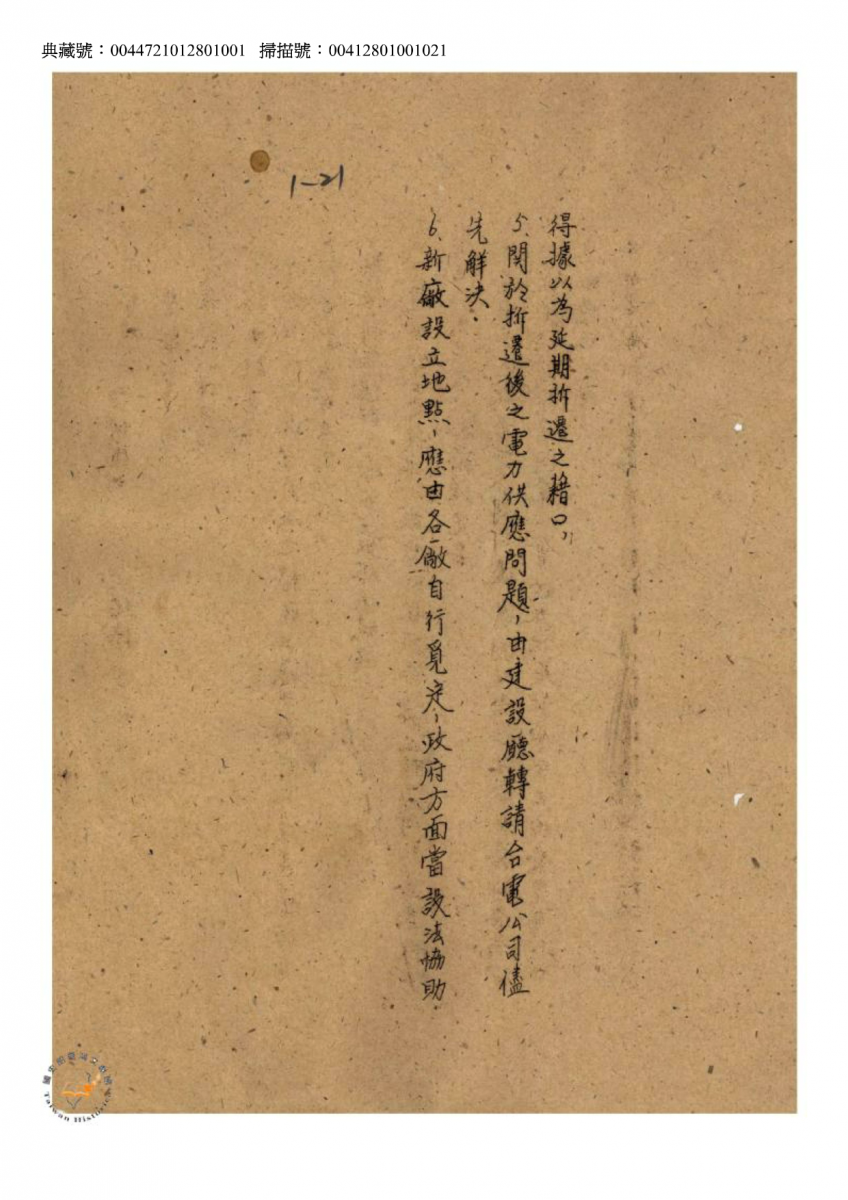 典藏號：0044721012801001 掃描號：00412801001021
1-21
得據以為延期拆遷之藉口，
5、関於拆遷後之電力供應問題，由建設廳轉請台電公司儘
先解決．
6、新廠設立地點，應由各廠自行覓定，政府方面當設法協助．
Taiwan Historica